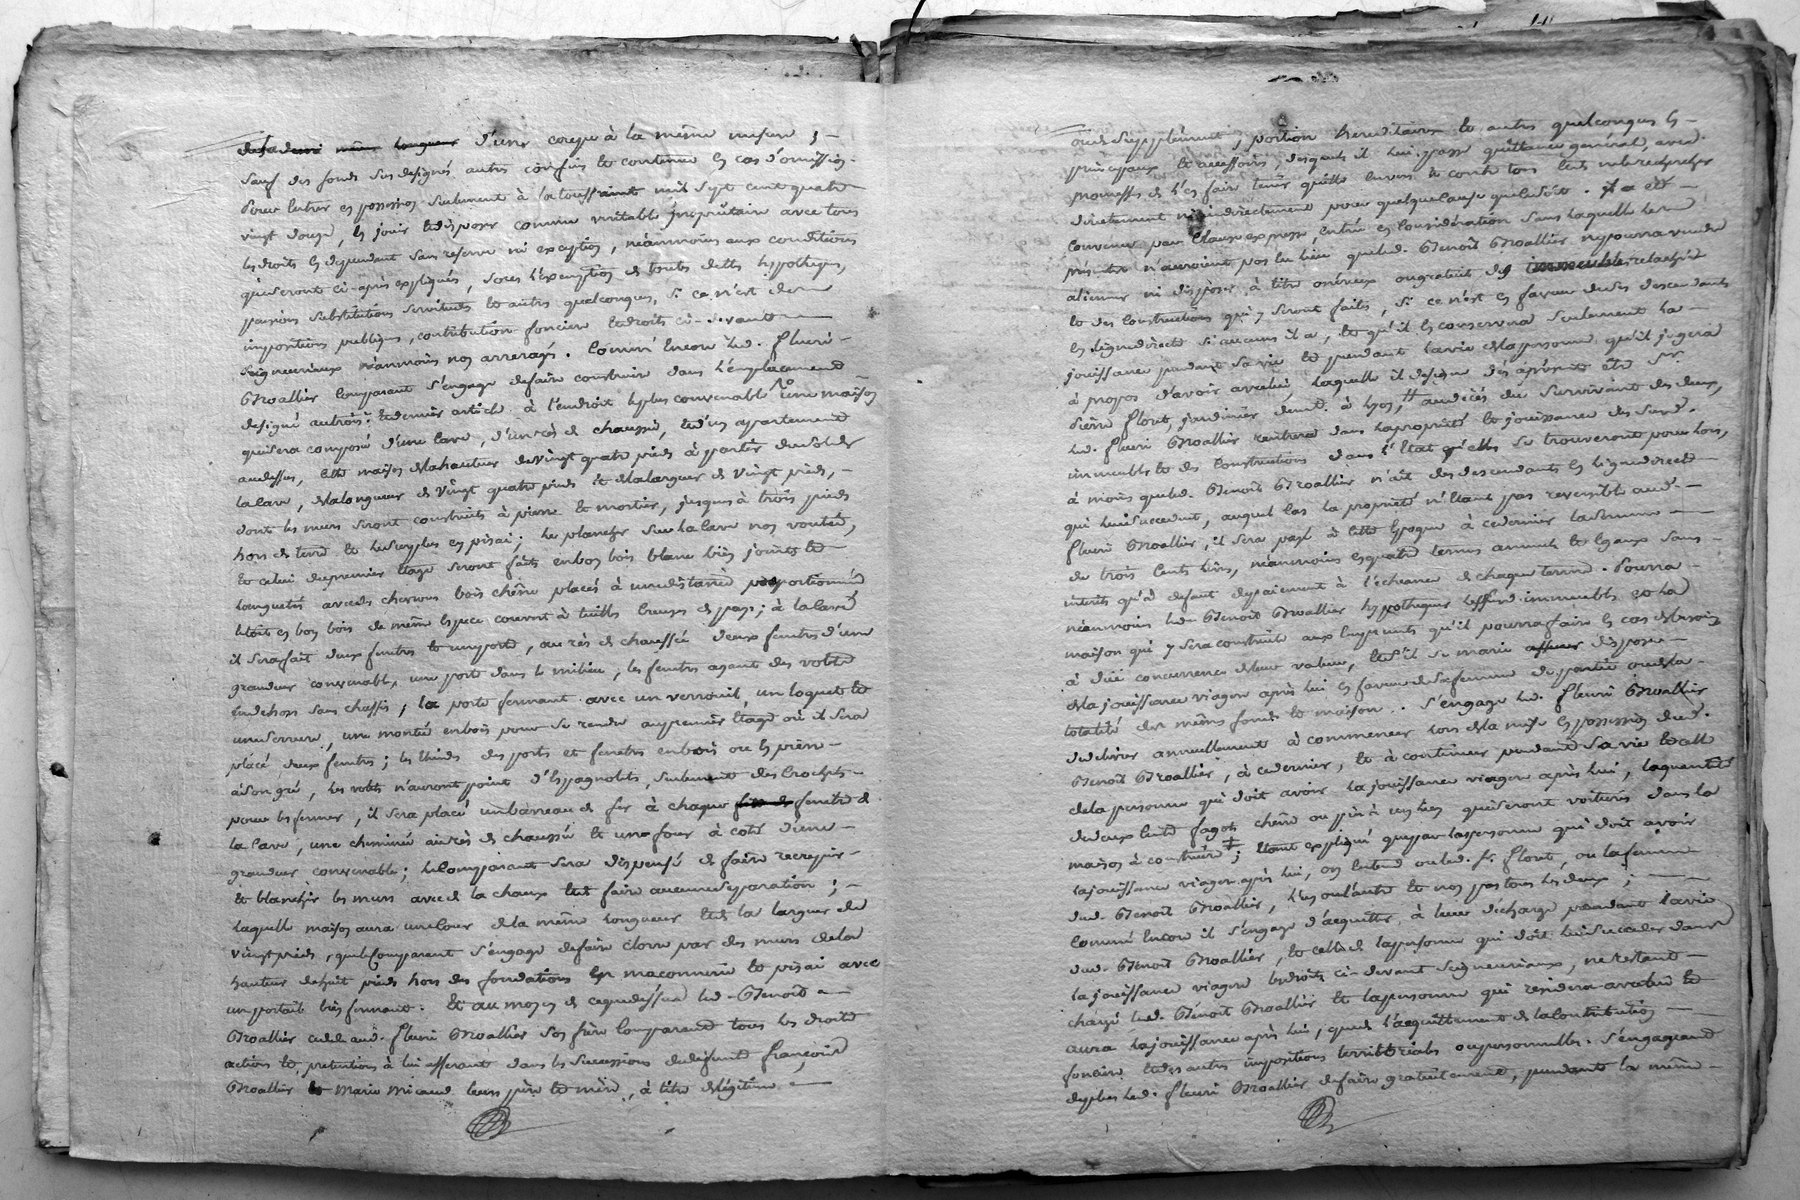 d'une coupe à la même mesure ; -
sauf des fonds susdesignés autres confins et contenue en cas d'omission -
pour entrer en possession seulement à la toussaint mil sept cent quatre
vingt douze, en jouir et disposer comme veritable propriétaire avec tous
les droits en dependant sans reserve ni exception, néanmoins aux conditions
qui seront ci-après expliqués, sous l'exemption de toutes dettes hypotheques,
pensions substitutions servitudes et autres quelconques, si ce n'est des
impositions publiques, contribution fonciere et droits ci-devant
seigneuriaux néanmoins non arreragés. Comme encore led. fleuri -
Broallier comparant s'engage de faire construire dans l'emplacement
designé au trois.e et dernier article à l'endroit le plus convenable 1.o une maison
qui sera composée d'une cave, d'un rès de chaussée, et d'un appartement
audessus, cette maison de la hauteur de vingt quatre pieds à partir du sol de
la cave, de la longueur de vingt quatre pieds et de la largeur de vingt pieds, -
dont les murs seront construits à pierre et mortier, jusques à trois pieds
hors de terre et le surplus en pisai ; le plancher sur la cave non voutée,
et celui du premier étage seront faits en bon bois blanc bien joints et
languetés avec des chevrons bois chêne placés à une distance proportionnée
le toit en bon bois de même espece couvert à tuilles creuses du pays ; à la cave
il sera fait deux fenetres et une porte, au rès de chaussée deux fenetres d'une
grandeur convenable, une porte dans le milieu, les fenetres ayant des volets
en dehors sans chassis, la porte fermant avec un verrouil, un loquet et
une serrure, une montée en bois pour se rendre au premier étage où il sera
placé deux fenetres ; les thuides des portes et fenetres en bois ou en pierre -
à son gré, les volets n'auront point d'Espagnolets, seulement des crochets -
pour les fermer, il sera placé un barreau de fer à chaque fenetre de
la cave, une cheminée au rès de chaussée et un four à coté d'une -
grandeur convenable ; le Comparant sera dispensé de faire recrepir -
et blanchir les murs avec de la chaux et de faire aucune separation ; -
laquelle maison aura une cour de la même longueur et de la largeur de
vingt pieds, que le Comparant s'engage de faire clorre par des murs de la
hauteur de huit pieds hors des fondations en maconnerie et pisai avec
un portail bien fermant. Et au moyen de ce que dessus led. Benoit -
Broallier cede aud. fleuri Broallier son frère Comparant tous les droits
actions et pretentions à lui afferant dans les successions de defunt françois
Broallier et Marie Micaud leurs père et mère, à titre de légitime -
ou de supplément, portion hereditaire et autres quelconques en -
principaux et accessoires desquels il lui passe quittance général, avec
promesse de l'en faire tenir quitte envers et contre tous et de ne le rechercher
directement ni indirectement pour quelque cause que ce soit. Il a été -
convenu par Clause expresse, entrée en considération sans laquelle les
présentes n'auroient pas eu lieu que led. Benoit Broallier ne pourra vendre
aliener ni disposer à titre onéreux ou gratuit des immeubles relachés
et des constructions qui y seront faits, si ce n'est en faveur de ses descendants
en ligne directe si aucuns il a, et qu'il en conservera seulement la -
jouissance pendant sa vie et pendant la vie de la personne qu'il jugera
à propos d'avoir avec lui, laquelle il designe dès à présent être S.r
Pierre Floret, jardinier demt. à Lyon, # au décès du survivant des deux,
led. fleuri Broallier rentrera dans la propriété et jouissance des susd.
immeubles et des Constructions dans l'état qu'elles se trouveront pour lors,
à moins que led. Benoit Broallier n'ait des descendants en ligne directe
qui lui succedent, auquel cas la propriété n'étant pas reversible aud. -
fleuri Broallier, il sera payé à cette Epoque à ce dernier la somme
de trois cents livres, néanmoins en quatre termes annuels et egaux sans -
interets qu'à defaut de paiement à l'échéance de chaque terme. Pourra -
néanmoins led. Benoit Broallier hypothequer lesd. immeubles et la
maison qui y sera construite aux Emprunts qu'il pourra faire en cas de besoin
à due concurrence de leur valeur, et s'il se marie disposer -
de la jouissance viagere après lui en faveur de sa femme de partie ou de la
totalité des mêmes fonds et maison. S'engage led. fleuri Broallier
de delivrer annuellement à commencer lors de la mise en possession dud.
Benoit Broallier, à ce dernier, et à continuer pendant sa vie et celle
de la personne qui doit avoir la jouissance viagere après lui, la quantité
de deux cents fagots chêne ou pin à ces lieux qui seront voiturés dans la
maison à construire ‡ ; Etant expliqué que par la personne qui doit avoir
la jouissance viagere après lui, on entend ou led. Sr. Floret, ou la femme
dud. Benoit Broallier, l'un ou l'autre et non pas tous les deux ;
Comme Encore il s'engage d'acquitter à leur décharge pendant la vie
dud. Benoit Broallier, et celle de la personne qui doit lui succeder dans
la jouissance viagere les droits ci-devant seigneuriaux, ne restant -
chargé led. Benoit Broallier et la personne qui
aura la jouissance après lui, que de l'acquittement de la Contribution
fonciere et des autres impositions territoriales ou personnelles. S'engageant
de plus led. fleuri Broallier de faire gratuitement, pendant la même -